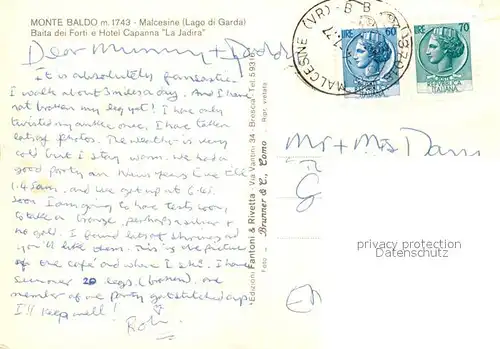 MONTE BALDO m. 1743 - Malcesine (Lago di Garda)
Baita dei Forti e Hotel Capanna "La Jadira"
Dear Mummy + Daddy
It is absolutely fantastic
I walk about 3 miles a day. And I have
not broken my leg yet! I have only
twisted my ankle once, I have taken
lots of photos. The weather is very
cold but I stay warm. We had a
good party on New Years Eve till
1.45am, and we get up at 6.45.
Soon I am going to have tests soon,
to take a bronze, perhaps a silver +
no gold. I found lots of
you'll like them. This is the picture
of the café and where I ski. I have
seen over 20 legs (broken), one
member of our party got stitched up
I'll keep well!
Rob
Edizioni Fantoni & Rivetta - Via Vantini 34 - Brescia - Tel. 59316
Foto - Brunner & C., Como
Ripr. vietata
MALCESINE (VR)
LIRE 60
LIRE 70
ITALIANA
Mr + Mrs
G
privacy protection
Datenschutz